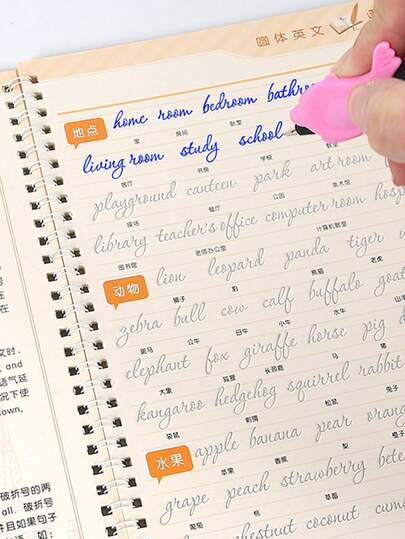 圆体英文
地点 home room bedroom
家 房间 卧室
living room study school
客厅 书房 学校 教室
playground canteen park art room
操场 餐厅 公园 美术馆
library teacher's office computer room
图书馆 老师办公室 计算机教室
动物 lion leopard panda tiger
狮子 豹 熊猫 老虎
zebra bull cow calf buffalo goat
斑马 公牛 母牛 小牛 水牛
elephant fox giraffe horse pig
大象 狐狸 长颈鹿 马 猪
kangaroo hedgehog squirrel rabbit
袋鼠 刺猬 松鼠 兔子
水果 apple banana pear
苹果 香蕉 梨 橙子
grape peach strawberry
葡萄 桃 草莓
chestnut coconut
文时，
and
语气延
况下使
own,
破折号的两
all. 破折号
并且如果句子